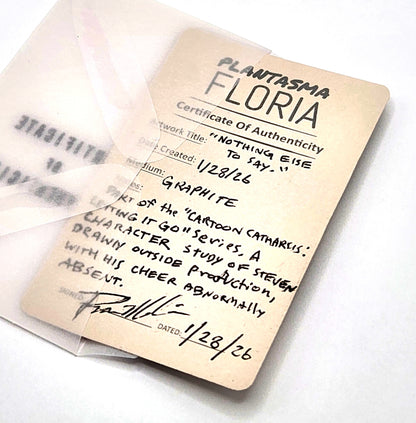 PLANTASMA
FLORIA
Certificate Of Authenticity
Artwork Title: "NOTHING ELSE
TO SAY."
Date Created: 1/28/26
Medium: GRAPHITE
PART of the "CARTOON CATHARSIS:
LETTING IT GO" SERIES. A
CHARACTER STUDY OF STEVEN
DRAWN OUTSIDE PRODUCTION,
WITH HIS CHEER ABNORMALLY
ABSENT.
SIGNED:
DATED: 1/28/26